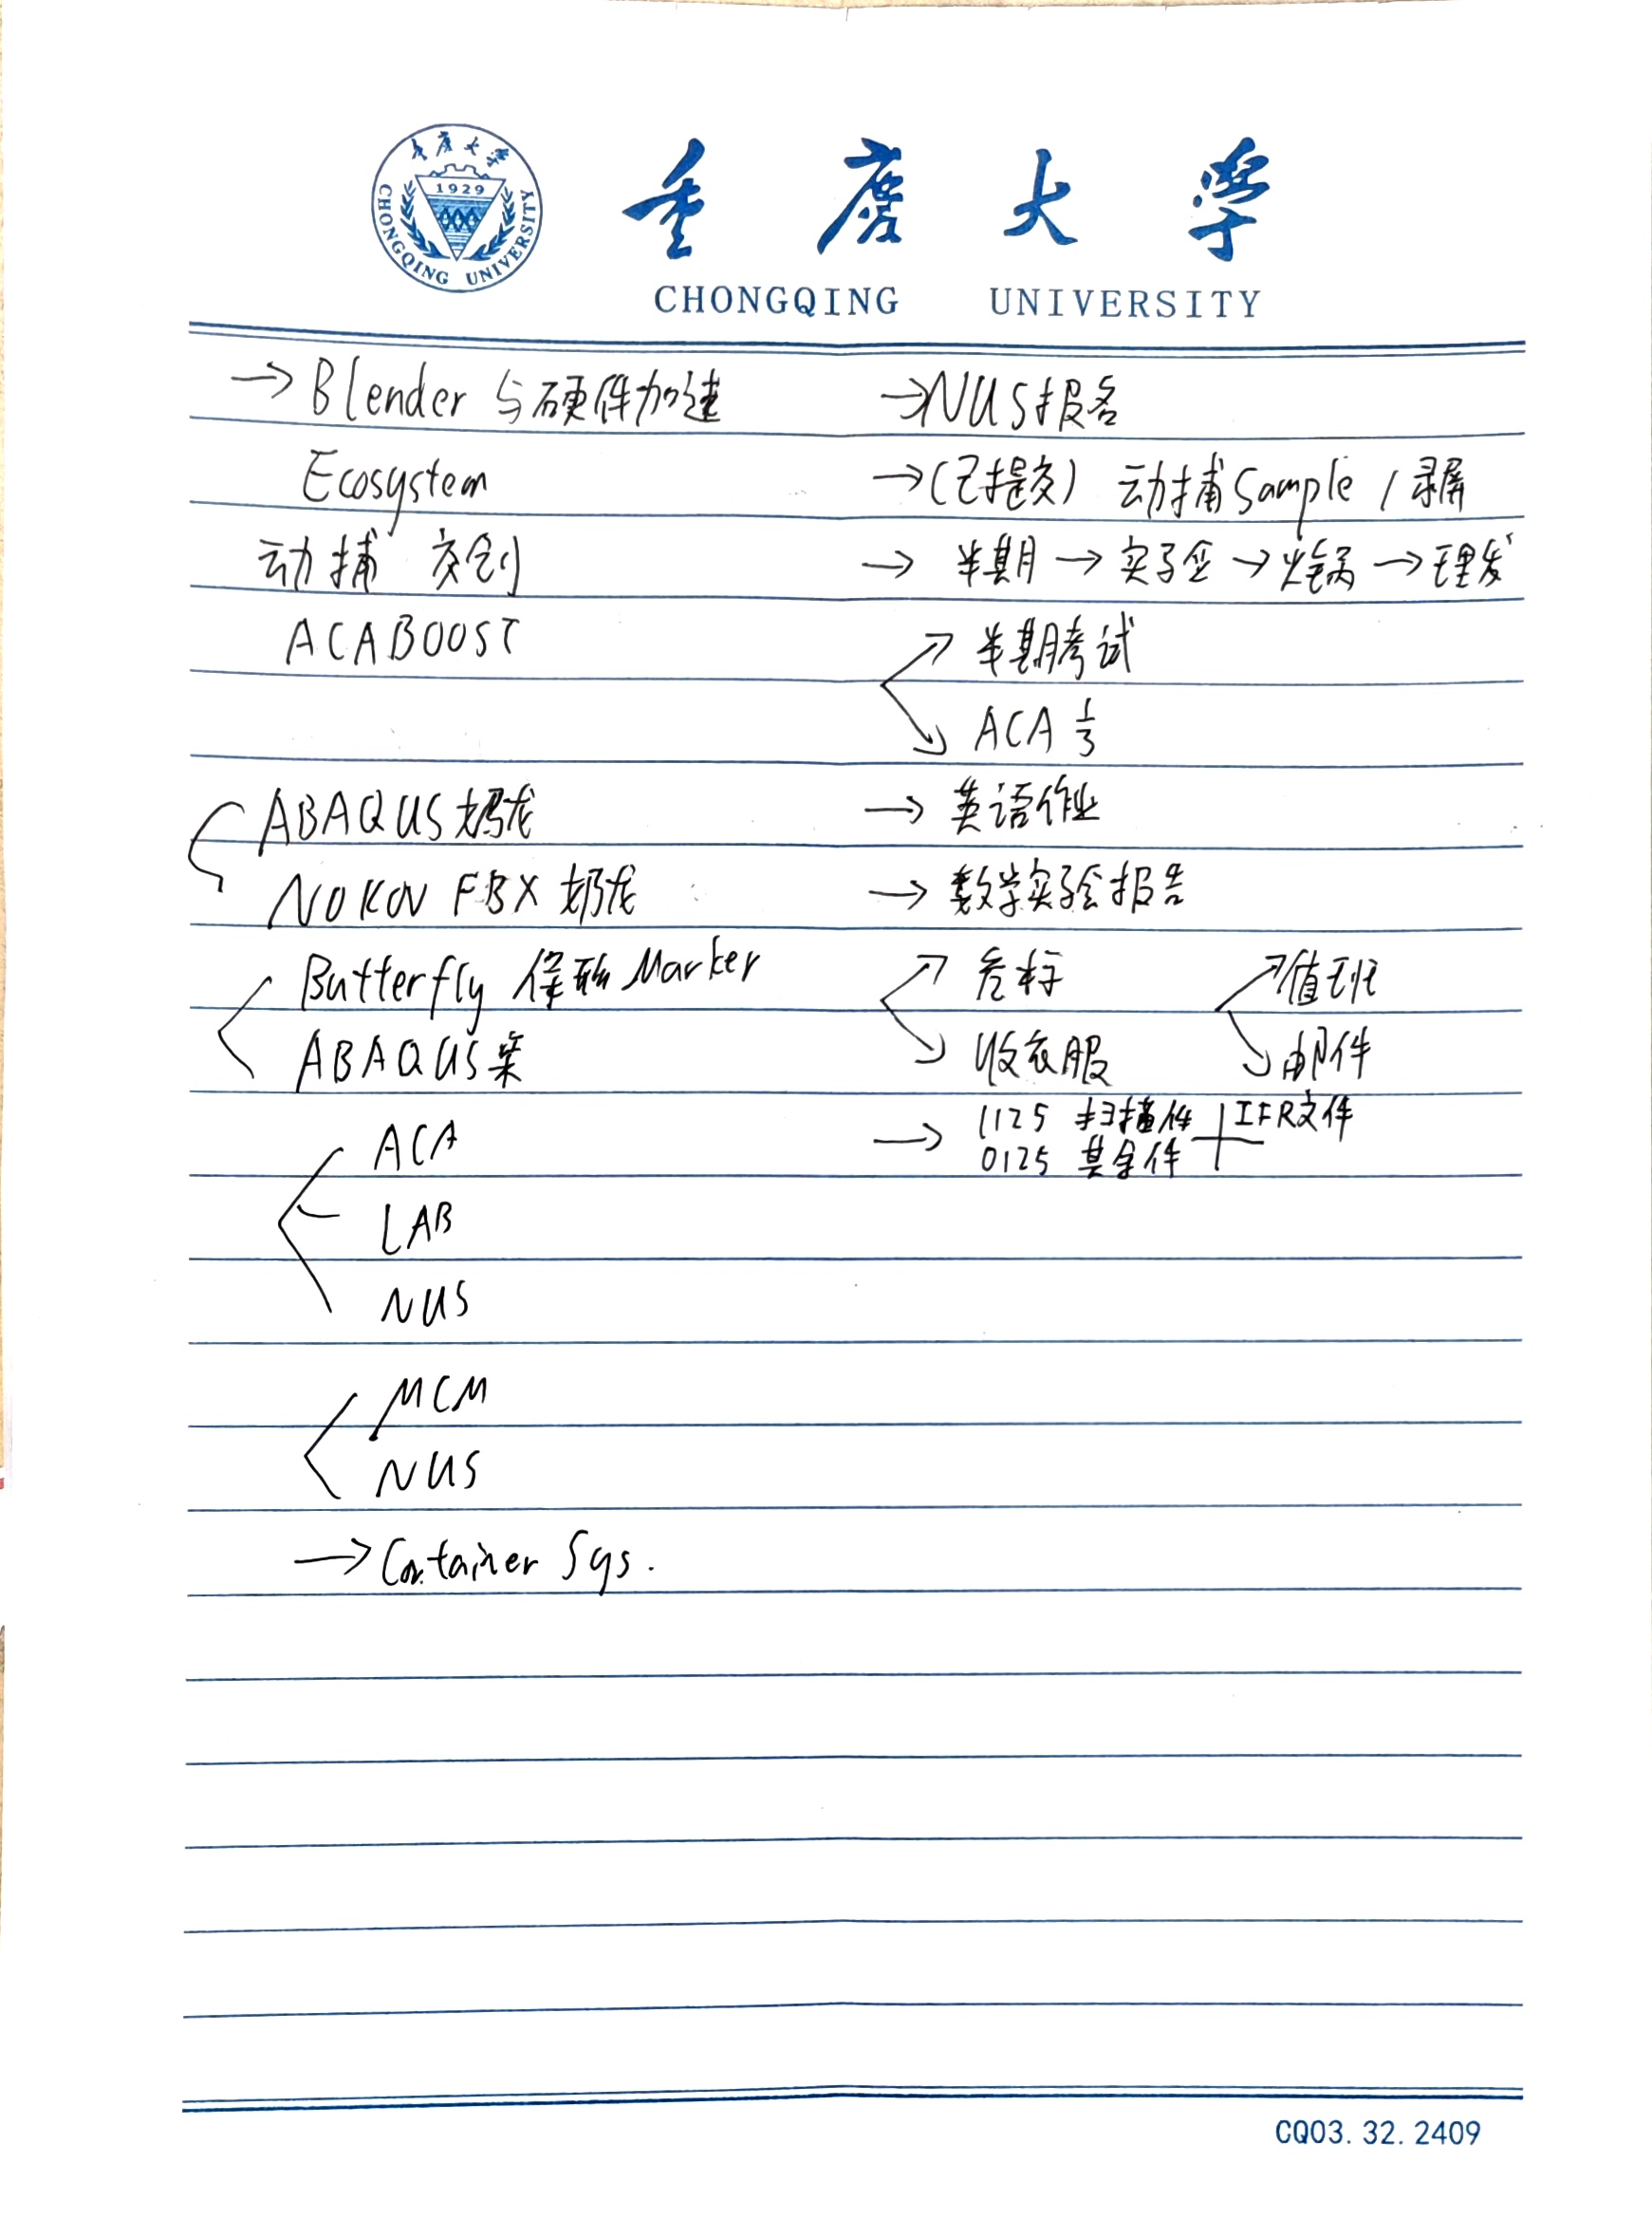 重庆大学
1929
CHONGQING UNIVERSITY
重庆大学
CHONGQING UNIVERSITY
→Blender 与硬件加速
Ecosystem
动捕
ACABOOST
ABAQUS 奶龙
NOKOV FBX 奶龙
Butterfly Marker
ABAQUS
ACA
LAB
NUS
MCM
NUS
→Container Sys.
→NUS报名
→(已提交) 动捕Sample / 录屏
→ 半期 → 实验 → 火锅 → 理发
半期考试
ACA 1/3
→ 英语作业
→ 数学实验报告
收衣服
值班
邮件
→ 1125 扫描件 IFR文件
0125 其余件
CQ03.32.2409